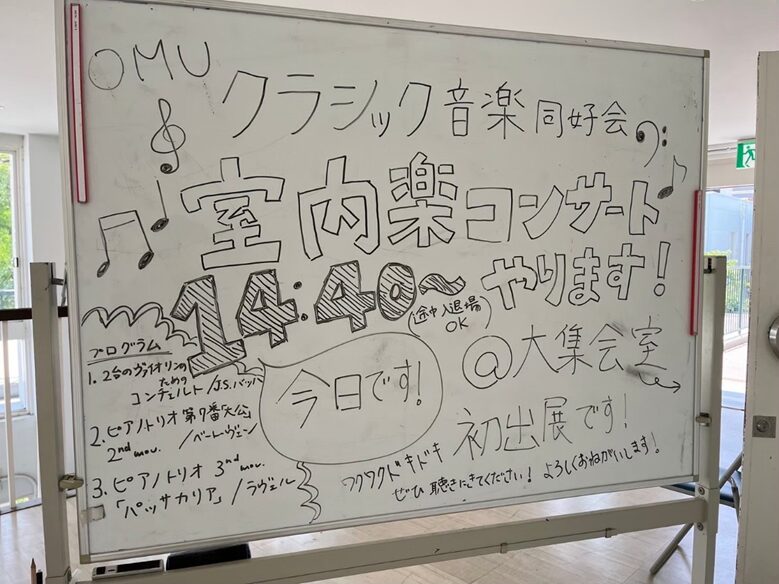 OMU
クラシック音楽同好会
室内楽コンサート
14:40〜やります!
(途中入退場
OK)
@大集会室
今日です!
プログラム
1. 2台のヴァイオリンの
ための
コンチェルト/J.S.バッハ
2. ピアノトリオ 第7番「大公」
2nd mov. /ベートーヴェン
3. ピアノトリオ 3rd mov.
「パッサカリア」/ラヴェル
初出展です!
ワクワクドキドキ
ぜひ聴きにきてください! よろしくおねがいします!